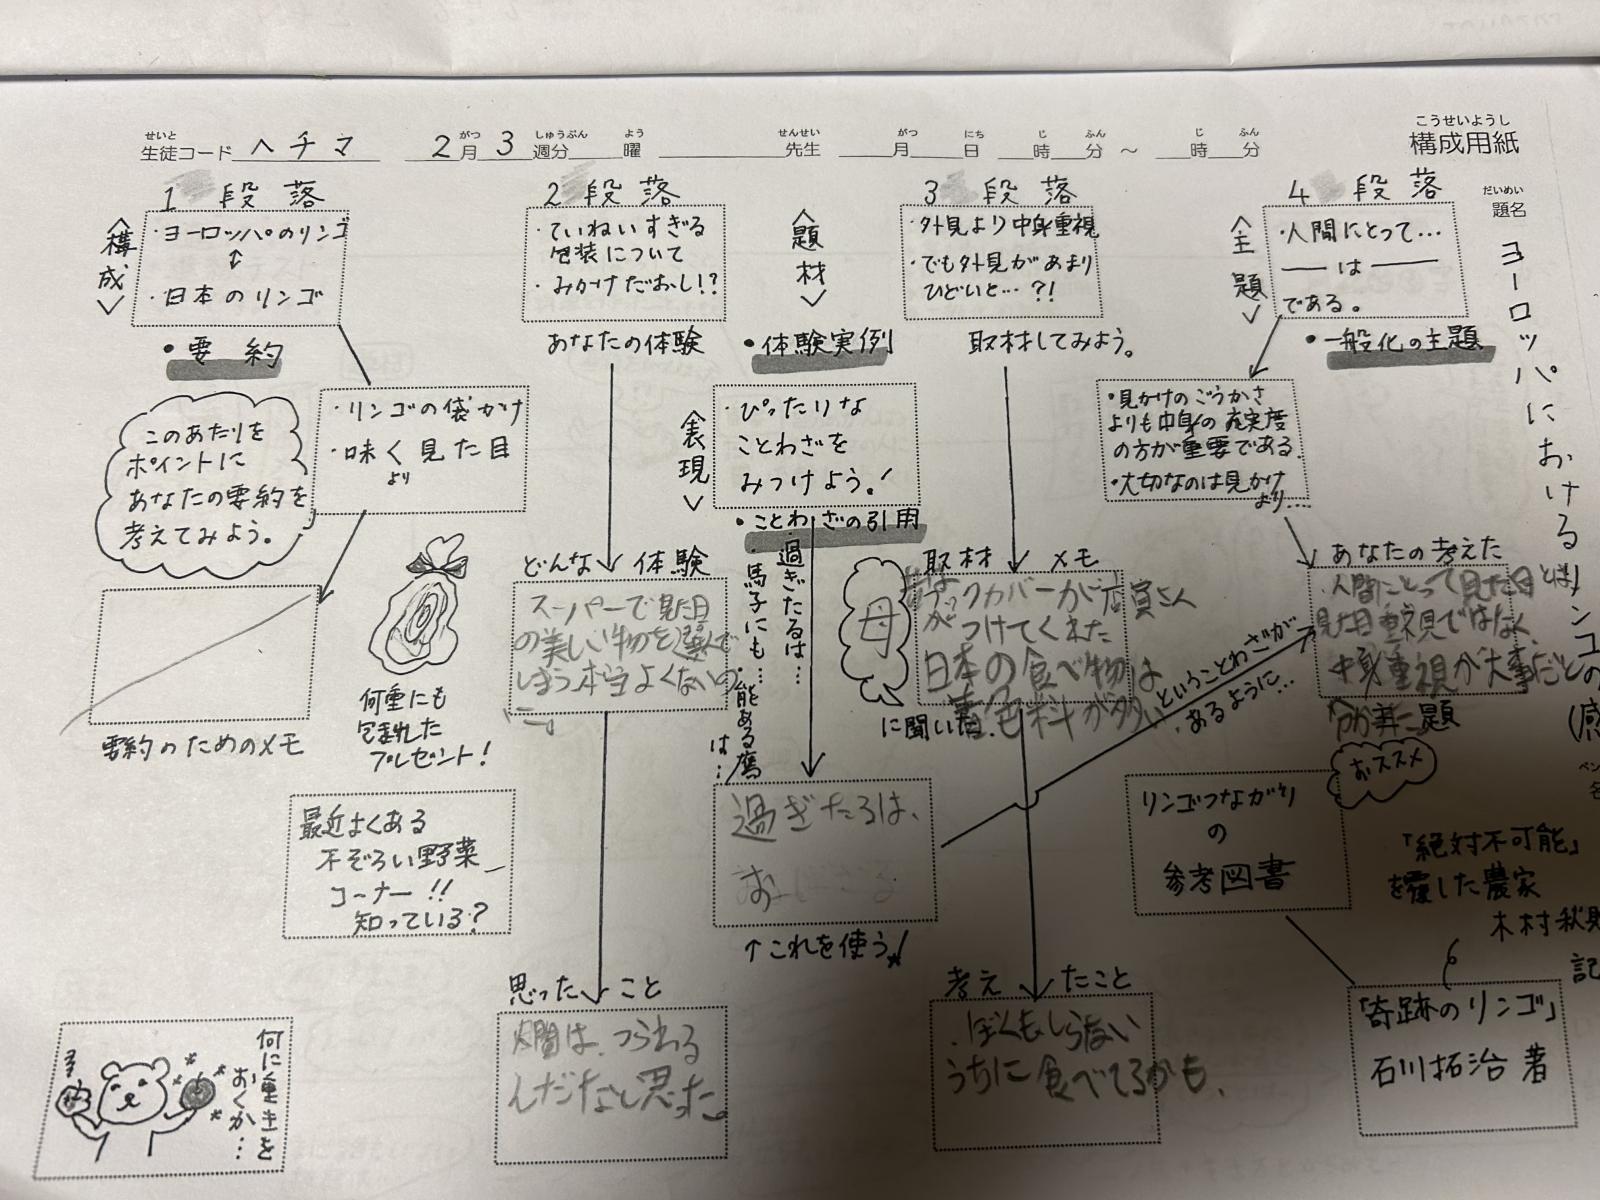 こうせいようし
構成用紙
せいと がつ しゅうぶん よう せんせい がつ にち じ ふん じ ふん
生徒コード ヘチマ 2月 3週分 曜 先生 月 日 時 分 ～ 時 分
だいめい
題名
ヨーロッパにおける
リンゴの
(感
ペン
名
1 段落
〈構成〉
・ヨーロッパのリンゴ
↕
・日本のリンゴ
・要約
・リンゴの袋かけ
・味く見た目
より
このあたりを
ポイントに
あなたの要約を
考えてみよう。
要約のためのメモ
何重にも
包まれた
プレゼント!
最近よくある
不ぞろい野菜
コーナー!!
知っている?
何に重きを
おくか…
2 段落
・ていねいすぎる
包装について
・みかけだおし!?
あなたの体験
どんな体験
スーパーで見た目
の美しい物を選んで
しまう本当よくないの
に。
思ったこと
人間は、つられる
んだなと思った。
〈題材〉
・体験実例
〈表現〉
・ぴったりな
ことわざを
みつけよう!
・ことわざの引用
・過ぎたるは…
・馬子にも…
・能ある鷹
は…
過ぎたるは、
↑これを使う!
3 段落
・外見より中身重視
・でも外見があまり
ひどいと…?!
取材してみよう。
取材メモ
母
に聞いた
ブックカバーが店員さん
がつけてくれた
日本の食べ物は
着色料が多い
考えたこと
・ぼくもしらない
うちに食べてるかも、
ということわざが
あるように…
4 段落
〈主題〉
・人間にとって…
── は ──
である。
・一般化の主題
・見かけのごうかさ
よりも中身の充実度
の方が重要である。
・大切なのは見かけ
より…
あなたの考えた
・人間にとって見た目とは
見た目重視ではなく、
中身重視が大事だと
おススメ
リンゴつながり
の
参考図書
「絶対不可能」
を覆した農家
木村秋則
記
「奇跡のリンゴ」
石川拓治 著